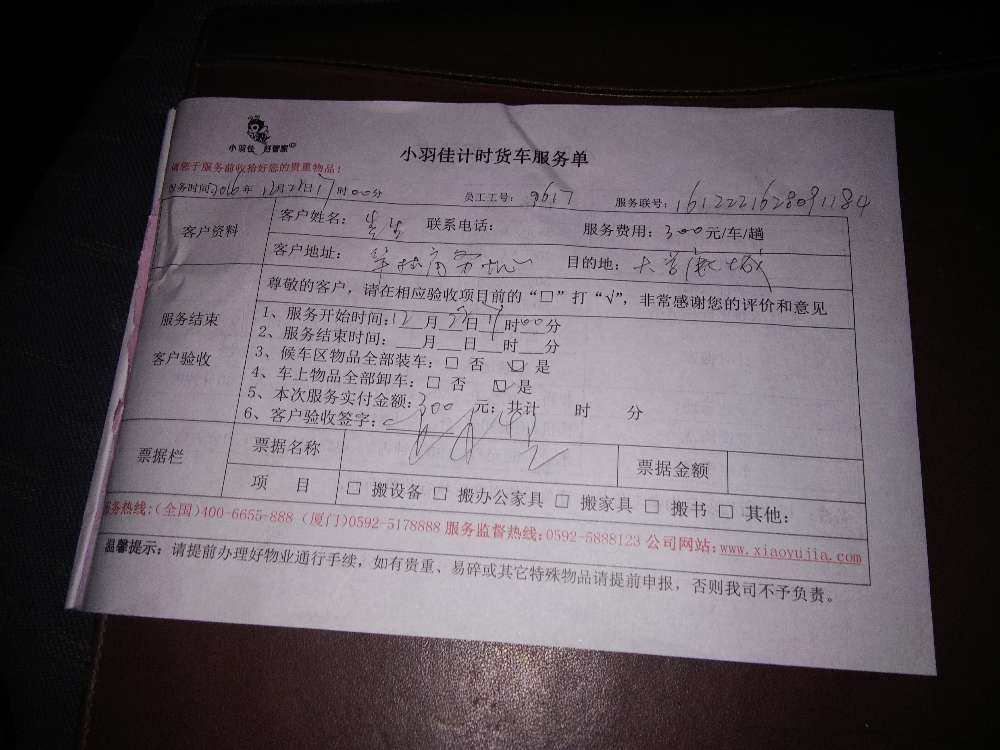 小羽佳 好管家
小羽佳计时货车服务单
请您于服务前收拾好您的贵重物品！
服务时间：2016年12月 日17时00分 员工工号：9617 服务联号：1612221628091184
客户资料 客户姓名： 联系电话： 服务费用：300元/车/趟
客户地址： 目的地：大
服务结束
客户验收
尊敬的客户，请在相应验收项目前的“□”打“√”，非常感谢您的评价和意见
1、服务开始时间：12月 日17时00分
2、服务结束时间：___月___日___时___分
3、候车区物品全部装车：□ 否 ☑ 是
4、车上物品全部卸车：□ 否 ☑ 是
5、本次服务实付金额：300 元；共计 时 分
6、客户验收签字：
票据栏 票据名称 票据金额
项 目 □ 搬设备 □ 搬办公家具 □ 搬家具 □ 搬书 □ 其他：
服务热线：(全国)400-6655-888 (厦门)0592-5178888 服务监督热线：0592-5888123 公司网站：www.xiaoyujia.com
温馨提示：请提前办理好物业通行手续，如有贵重、易碎或其它特殊物品请提前申报，否则我司不予负责。